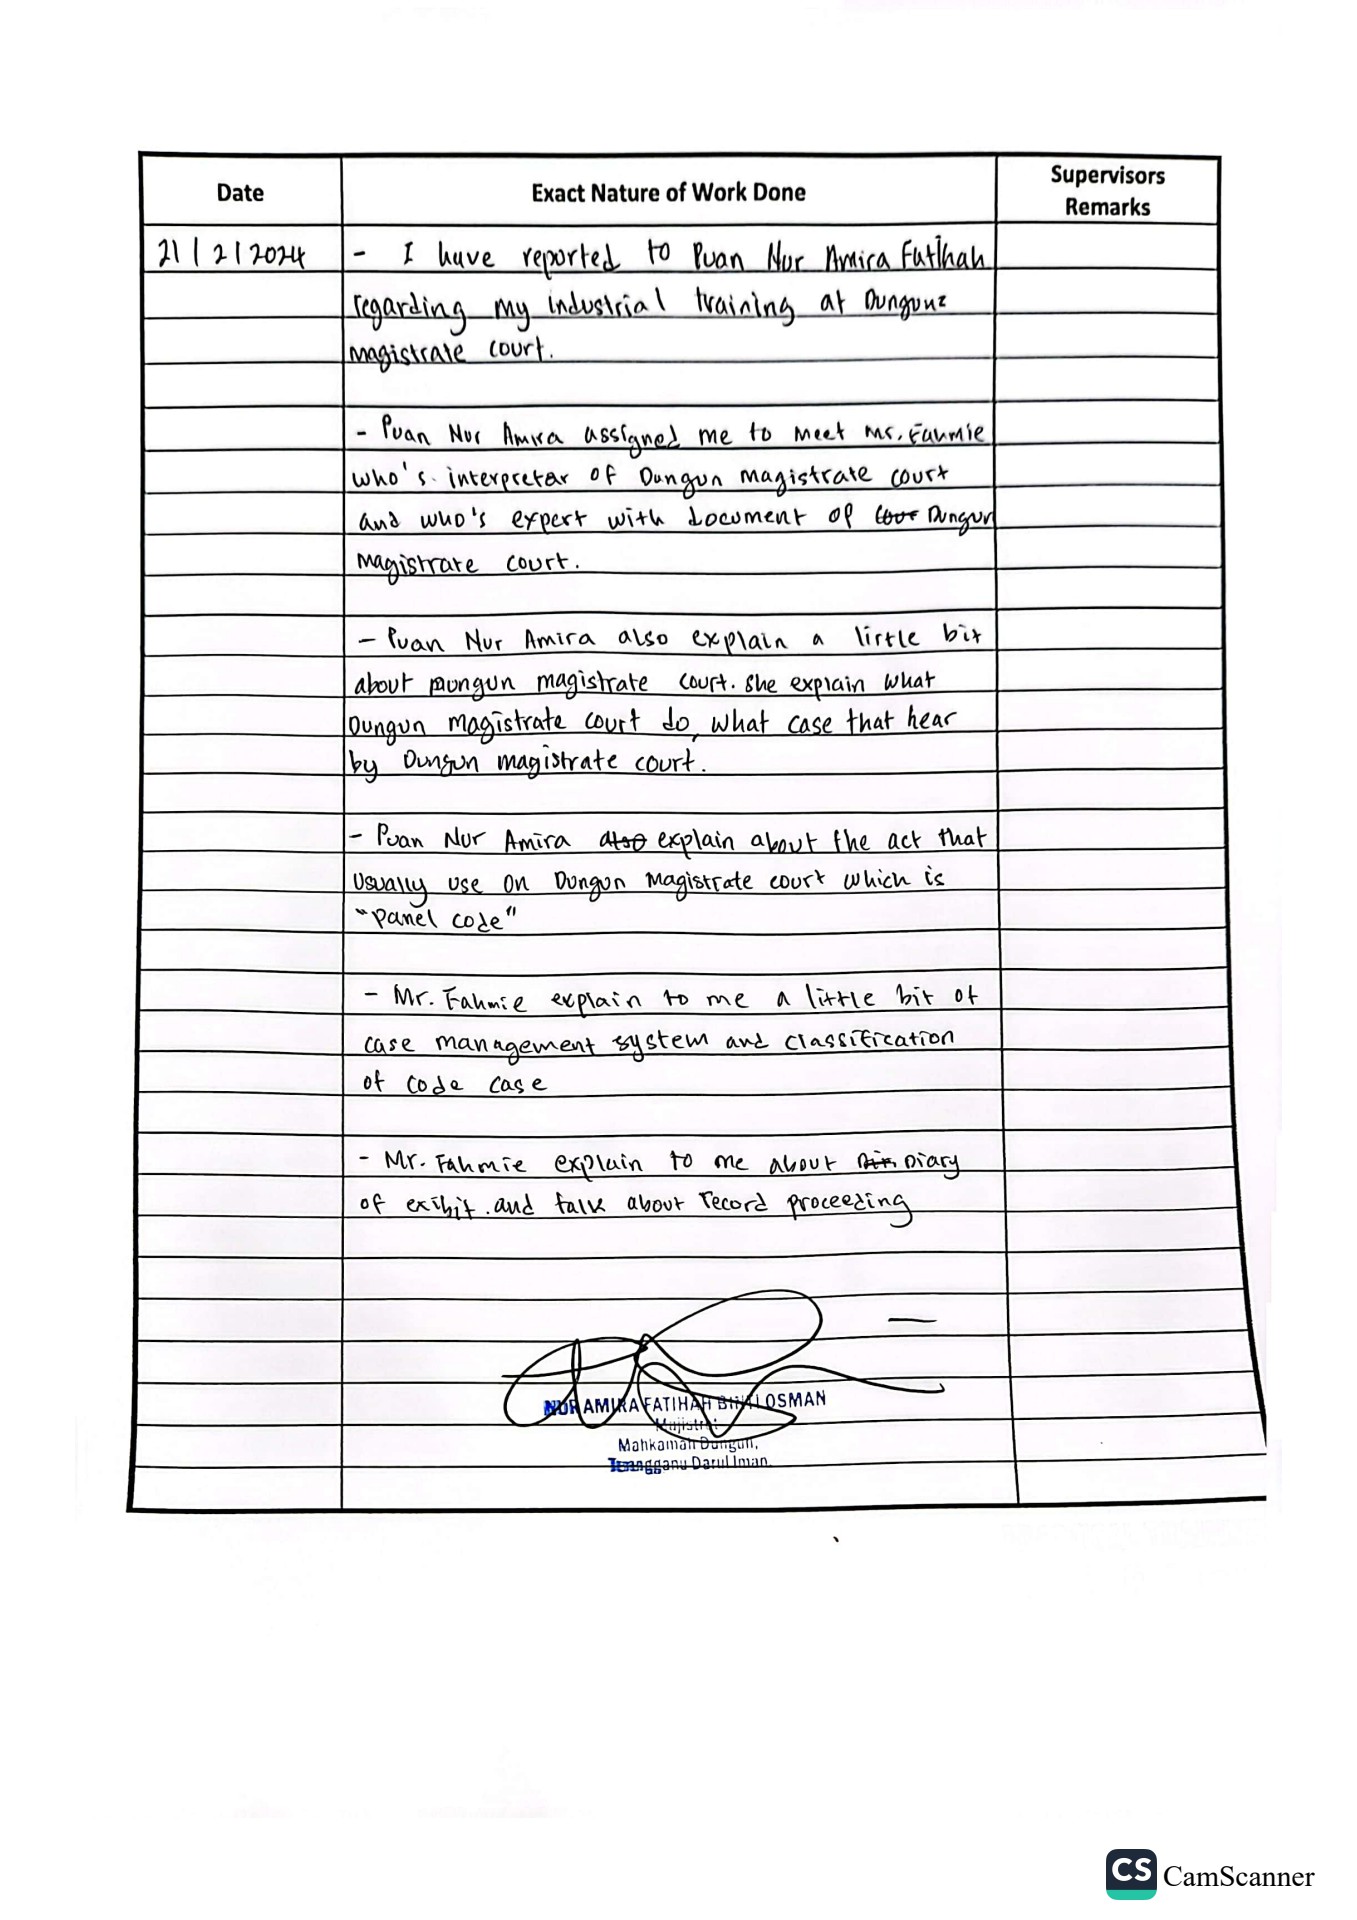 Date
Exact Nature of Work Done
Supervisors
Remarks
21 / 2 / 2024
- I have reported to Puan Nur Amira Fatihah
regarding my industrial training at Dungun
magistrate court.
- Puan Nur Amira assigned me to meet Mr. Fahmie
who's interpretar of Dungun magistrate court
and who's expert with document of Dungun
magistrate court.
- Puan Nur Amira also explain a little bit
about Dungun magistrate court. She explain what
Dungun magistrate court do, what case that hear
by Dungun magistrate court.
- Puan Nur Amira also explain about the act that
usually use on Dungun Magistrate court which is
"Panel code"
- Mr. Fahmie explain to me a little bit of
case management system and classification
of code case
- Mr. Fahmie explain to me about Diary
of exibit. and talk about record proceeding
NUR AMIRA FATIHAH BINTI OSMAN
Majistret
Mahkamah Dungun,
Terengganu Darul Iman.
CS CamScanner